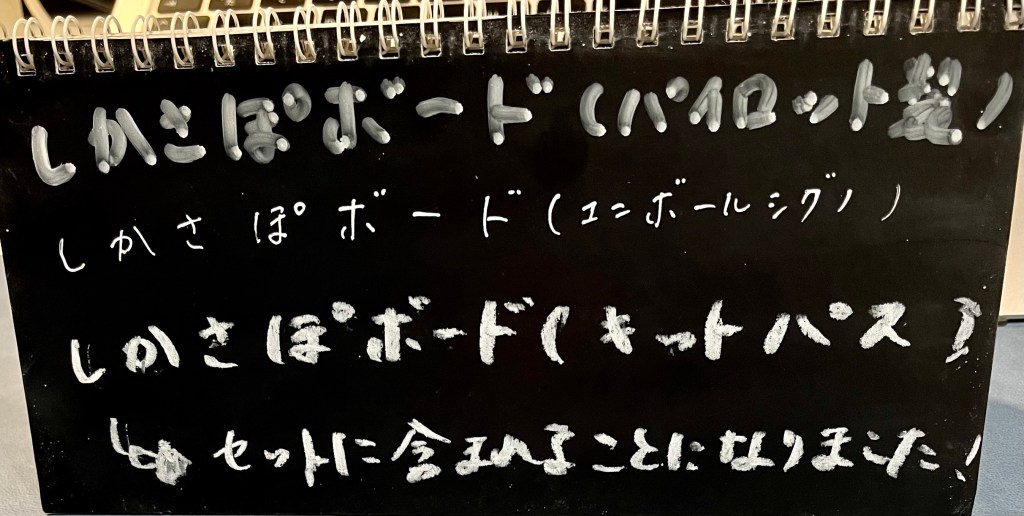 しかさぽボード(パイロット製)
しかさぽボード(ユニボールシグノ)
しかさぽボード(キットパス)
セットに含まれることになりました!